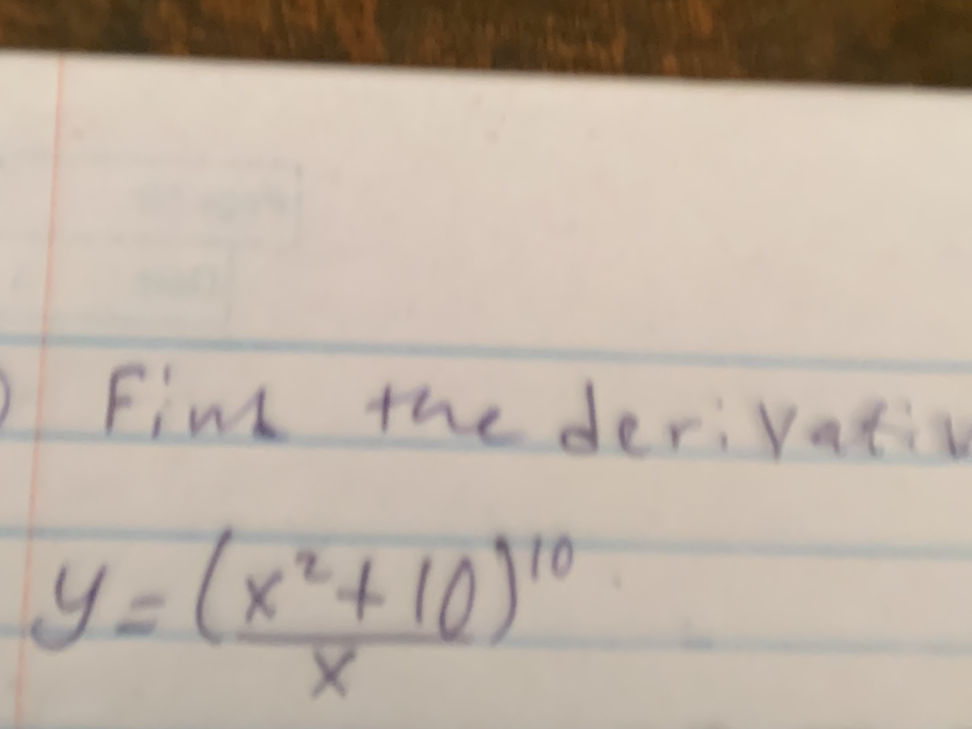 ) Find the derivativ
y = (x²+10)¹⁰
x